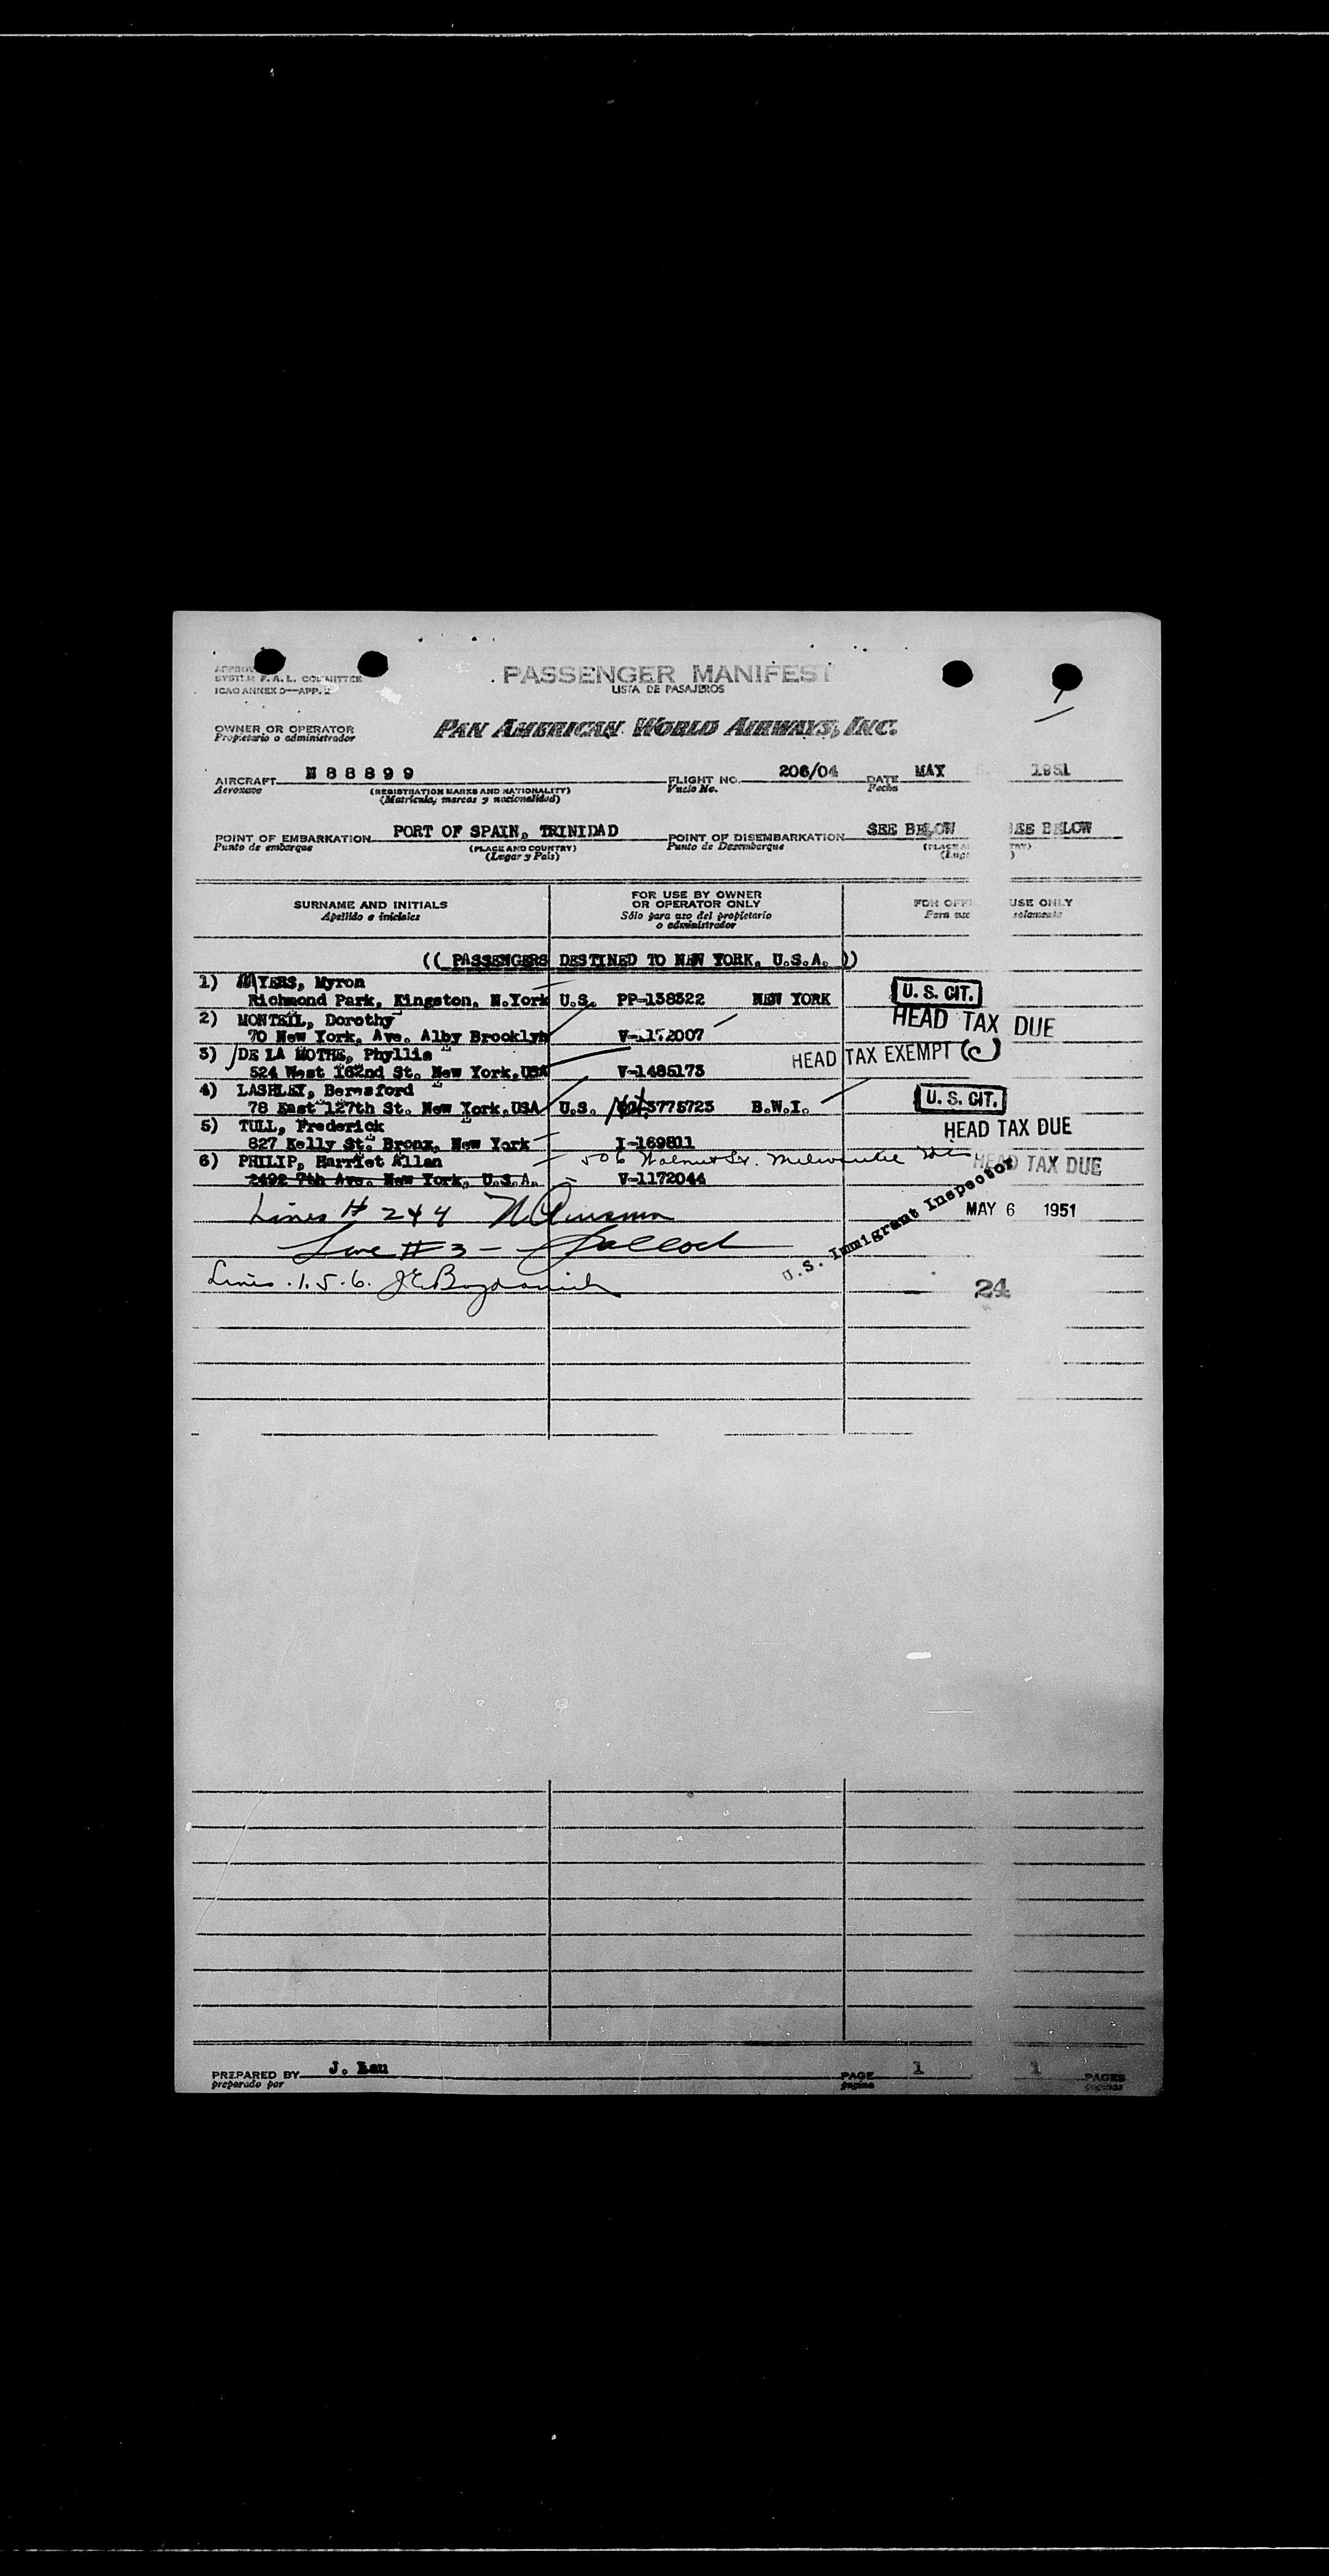 SYSTEM F. A. L. COMMITTEE
ICAO ANNEX 9—APP. 2
PASSENGER MANIFEST
LISTA DE PASAJEROS
OWNER OR OPERATOR
Propietario o administrador
PAN AMERICAN WORLD AIRWAYS, INC.
AIRCRAFT N 8 8 8 9 9 FLIGHT NO. 206/04 DATE MAY 1951
Aeronave (REGISTRATION MARKS AND NATIONALITY) Vuelo No. Fecha
(Matricula, marcas y nacionalidad)
POINT OF EMBARKATION PORT OF SPAIN, TRINIDAD POINT OF DISEMBARKATION SEE BELOW SEE BELOW
Punto de embarque (PLACE AND COUNTRY) Punto de Desembarque
(Lugar y País)
SURNAME AND INITIALS
Apellido e iniciales
FOR USE BY OWNER
OR OPERATOR ONLY
Sólo para uso del propietario
o administrador
FOR OFFI USE ONLY
Para uso solamente
(( PASSENGERS DESTINED TO NEW YORK, U.S.A. ))
1) MYERS, Myron
Richmond Park, Kingston, N.York U.S. PP-138322 NEW YORK U. S. CIT.
2) MONTEIL, Dorothy HEAD TAX DUE
70 New York, Ave. Alby Brooklyn V-1172007
3) DE LA MOTHE, Phyllis HEAD TAX EXEMPT (C)
524 West 162nd St. New York, USA V-1485173
4) LASHLEY, Beresford
78 East 127th St. New York, USA U.S. 3775723 B.W.I. U. S. CIT.
5) TULL, Frederick HEAD TAX DUE
827 Kelly St. Bronx, New York I-169811
6) PHILIP, Harriet Allan 506 Walnut St. Milwaukee HEAD TAX DUE
2492 7th Ave. New York, U.S.A. V-1172044
Lines # 2 4 4
MAY 6 1951
U.S. Immigrant Inspector
Line # 3 -
Lines . 1. 5. 6.
24
PREPARED BY J. Lau PAGE 1 1 PAGES
preparado por página páginas